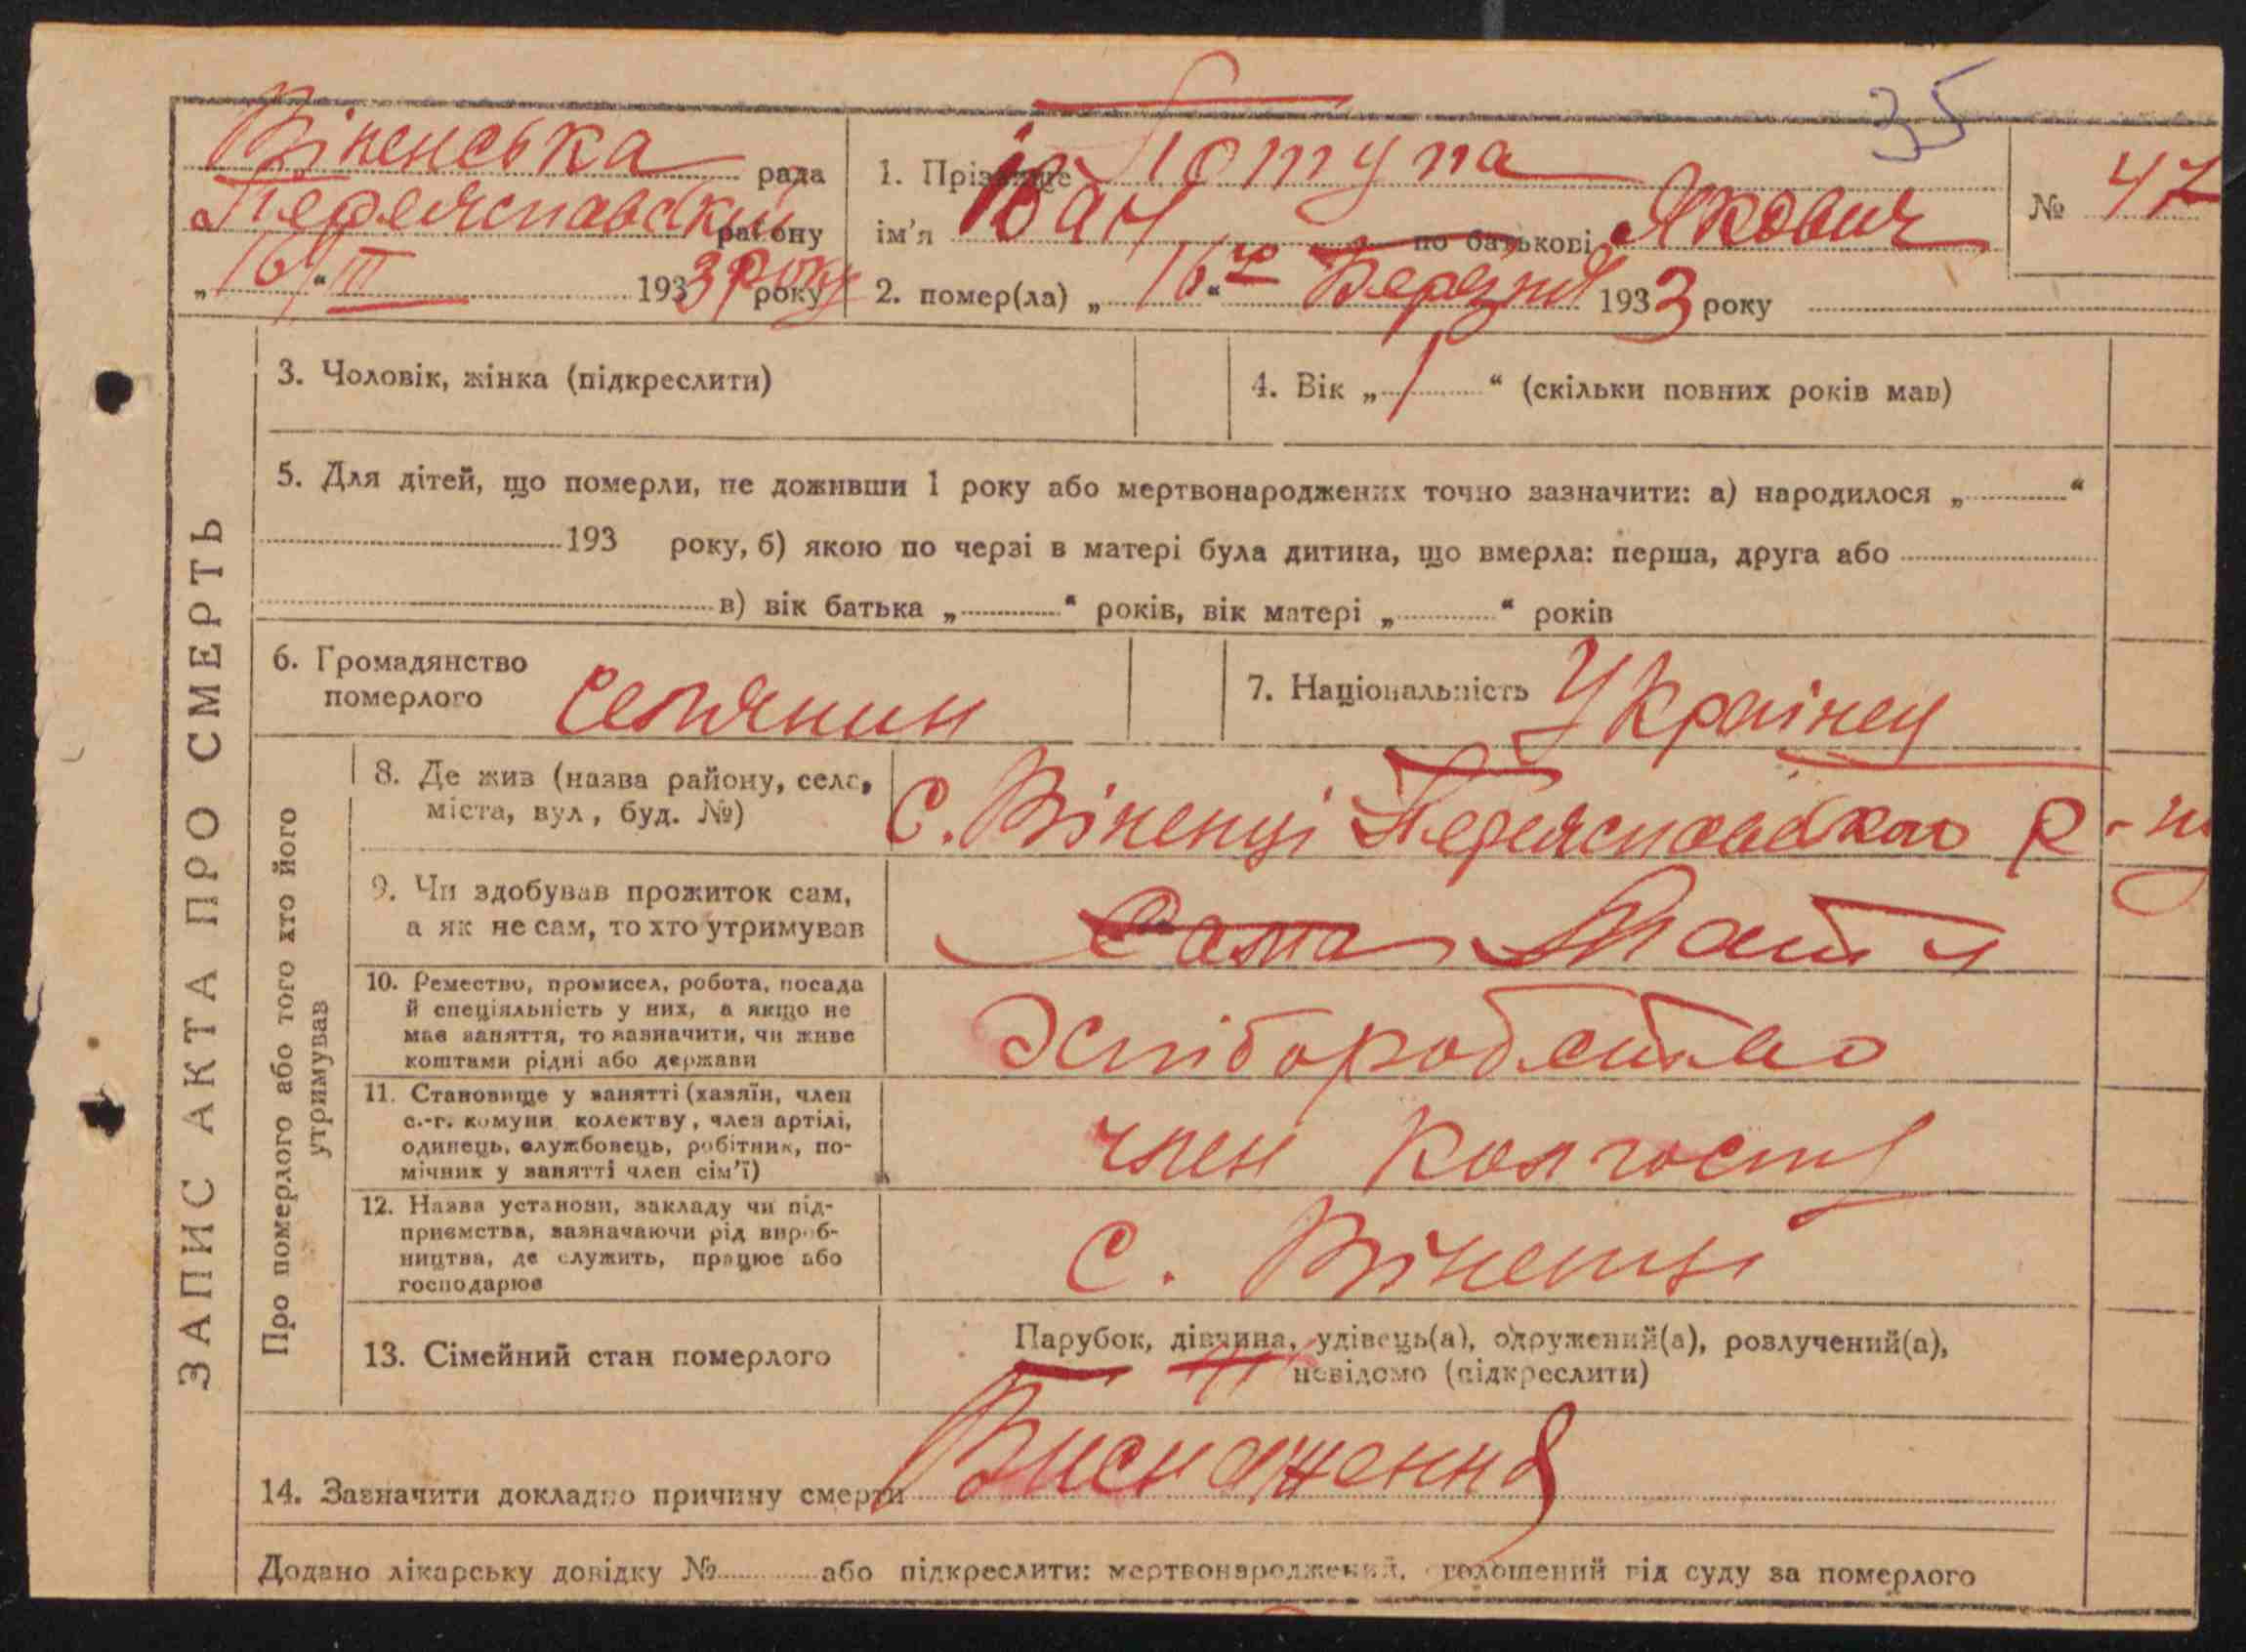 35
Віненська рада
Переяславський району
„16“ III 1933 року року
1. Прізвище Потупа
ім'я Іван по батькові Якович
№ 47
2. помер(ла) „16го“ Березня 1933 року
ЗАПИС АКТА ПРО СМЕРТЬ
3. Чоловік, жінка (підкреслити)
4. Вік „1“ (скільки повних років мав)
5. Для дітей, що померли, не доживши 1 року або мертвонароджених точно зазначити: а) народилося „ “
193 року, б) якою по черзі в матері була дитина, що вмерла: перша, друга або
в) вік батька „ “ років, вік матері „ “ років
6. Громадянство
померлого селянин
7. Національність Українец
Про померлого або того хто його
утримував
8. Де жив (назва району, села,
міста, вул, буд. №)
С. Віненці Переяславського Р-ну
9. Чи здобував прожиток сам,
а як не сам, то хто утримував
Сама Мати
10. Ремество, промисел, робота, посада
й спеціяльність у них, а якщо не
має заняття, то зазначити, чи живе
коштами рідні або держави
Хліборобство
11. Становище у занятті (хазяїн, член
с.-г. комуни колектву, член артілі,
одинець, службовець, робітник, по-
мічник у занятті член сім'ї)
член Колгоспу
12. Назва установи, закладу чи під-
приємства, зазначаючи рід вироб-
ництва, де служить, працює або
господарює
С. Віненці
13. Сімейний стан померлого
Парубок, дівчина, удівець(а), одружений(а), розлучений(а),
невідомо (підкреслити)
14. Зазначити докладно причину смерти Виснаження
Додано лікарську довідку № або підкреслити: мертвонароджений, голошений від суду за померлого